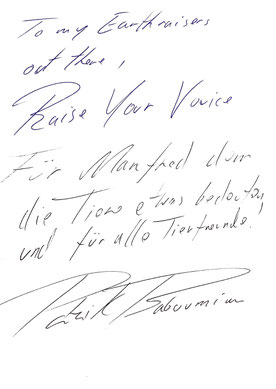 To my Earthraisers
out there,
Raise Your Vovice
Für Manfred dem
die Tiere etwas bedeuten,
und für alle Tierfreunde!
Patrik Baboumian